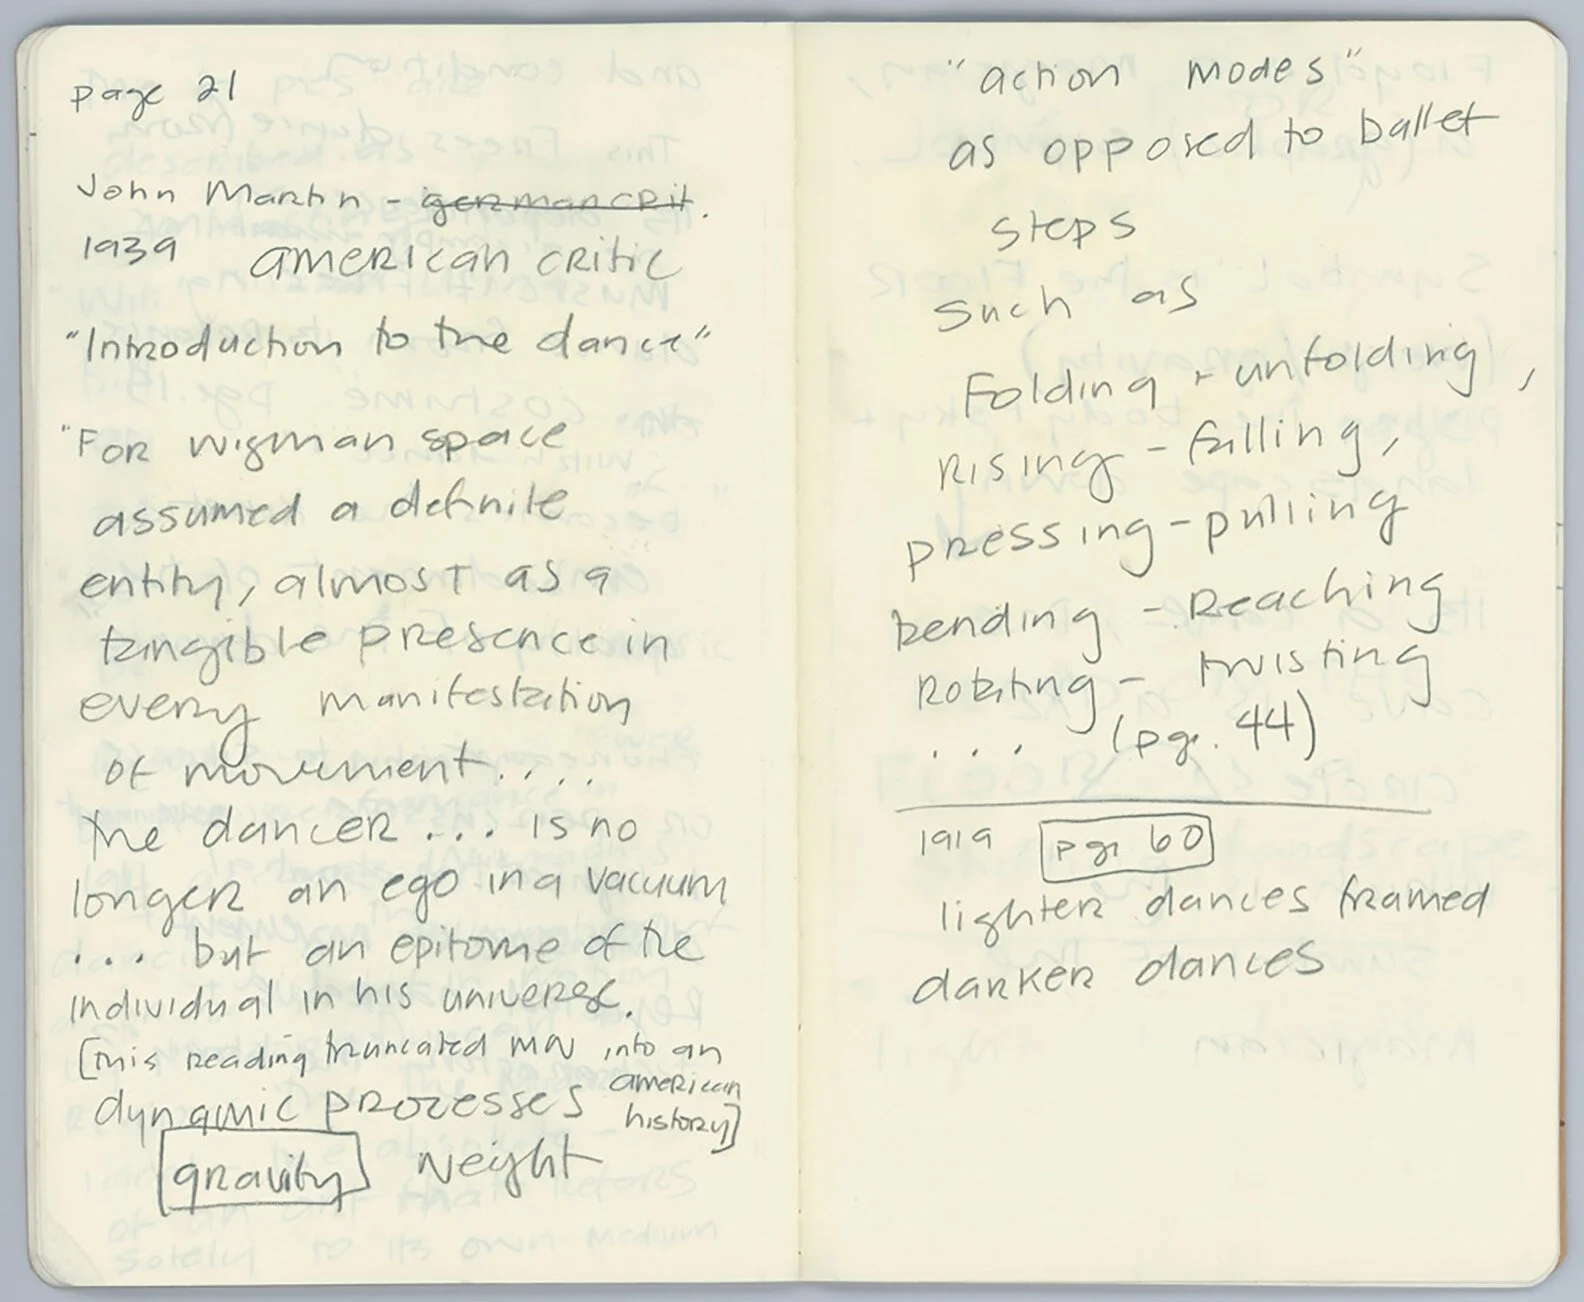 page 21
John Martin - german crit.
1939 american critic
"Introduction to the dance"
"For wigman space
assumed a definite
entity, almost as a
tangible presence in
every manifestation
of movement....
the dancer... is no
longer an ego in a vacuum
... but an epitome of the
individual in his universe.
[this reading truncated MW into an
american
dynamic processes history]
gravity weight
"action modes"
as opposed to ballet
steps
such as
Folding + unfolding,
Rising - falling,
pressing - pulling
bending - Reaching
Rotating - twisting
... (pg. 44)
1919 pg. 60
lighter dances framed
darker dances